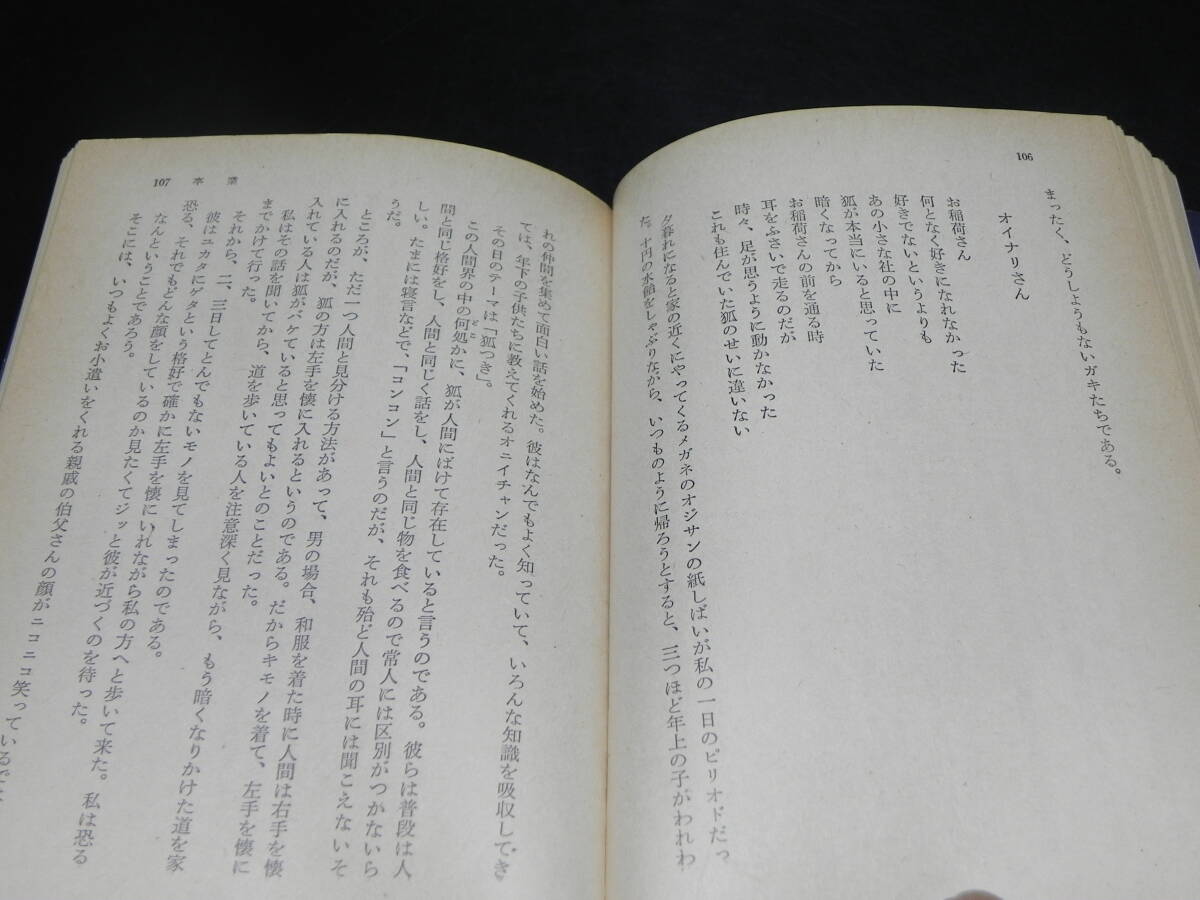 106
まったく、どうしようもないガキたちである。
オイナリさん
お稲荷さん
何となく好きになれなかった
好きでないというよりも
あの小さな社の中に
狐が本当にいると思っていた
暗くなってから
お稲荷さんの前を通る時
耳をふさいで走るのだが
時々、足が思うように動かなかった
これも住んでいた狐のせいに違いない
夕暮れになると家の近くにやってくるメガネのオジサンの紙しばいが私の一日のピリオドだっ
た。十円の水飴をしゃぶりながら、いつものように帰ろうとすると、三つほど年上の子がわれわ
107 卒業
れの仲間を集めて面白い話を始めた。彼はなんでもよく知っていて、いろんな知識を吸収してき
ては、年下の子供たちに教えてくれるオニイチャンだった。
その日のテーマは「狐つき」。
この人間界の中の何処かに、狐が人間にばけて存在していると言うのである。彼らは普段は人
間と同じ格好をし、人間と同じく話をし、人間と同じ物を食べるので常人には区別がつかないら
しい。たまには寝言などで、「コンコン」と言うのだが、それも殆ど人間の耳には聞こえないそ
うだ。
ところが、ただ一つ人間と見分ける方法があって、男の場合、和服を着た時に人間は右手を懐
に入れるのだが、狐の方は左手を懐に入れるというのである。だからキモノを着て、左手を懐に
入れている人は狐がバケていると思ってもよいとのことだった。
私はその話を聞いてから、道を歩いている人を注意深く見ながら、もう暗くなりかけた道を家
までかけて行った。
それから、二、三日してとんでもないモノを見てしまったのである。
彼はユカタにゲタという格好で確かに左手を懐にいれながら私の方へと歩いて来た。私は恐る
恐る、それでもどんな顔をしているのか見たくてジッと彼が近づくのを待った。
なんということであろう。
そこには、いつもよくお小遣いをくれる親戚の伯父さんの顔がニコニコ笑っているでは